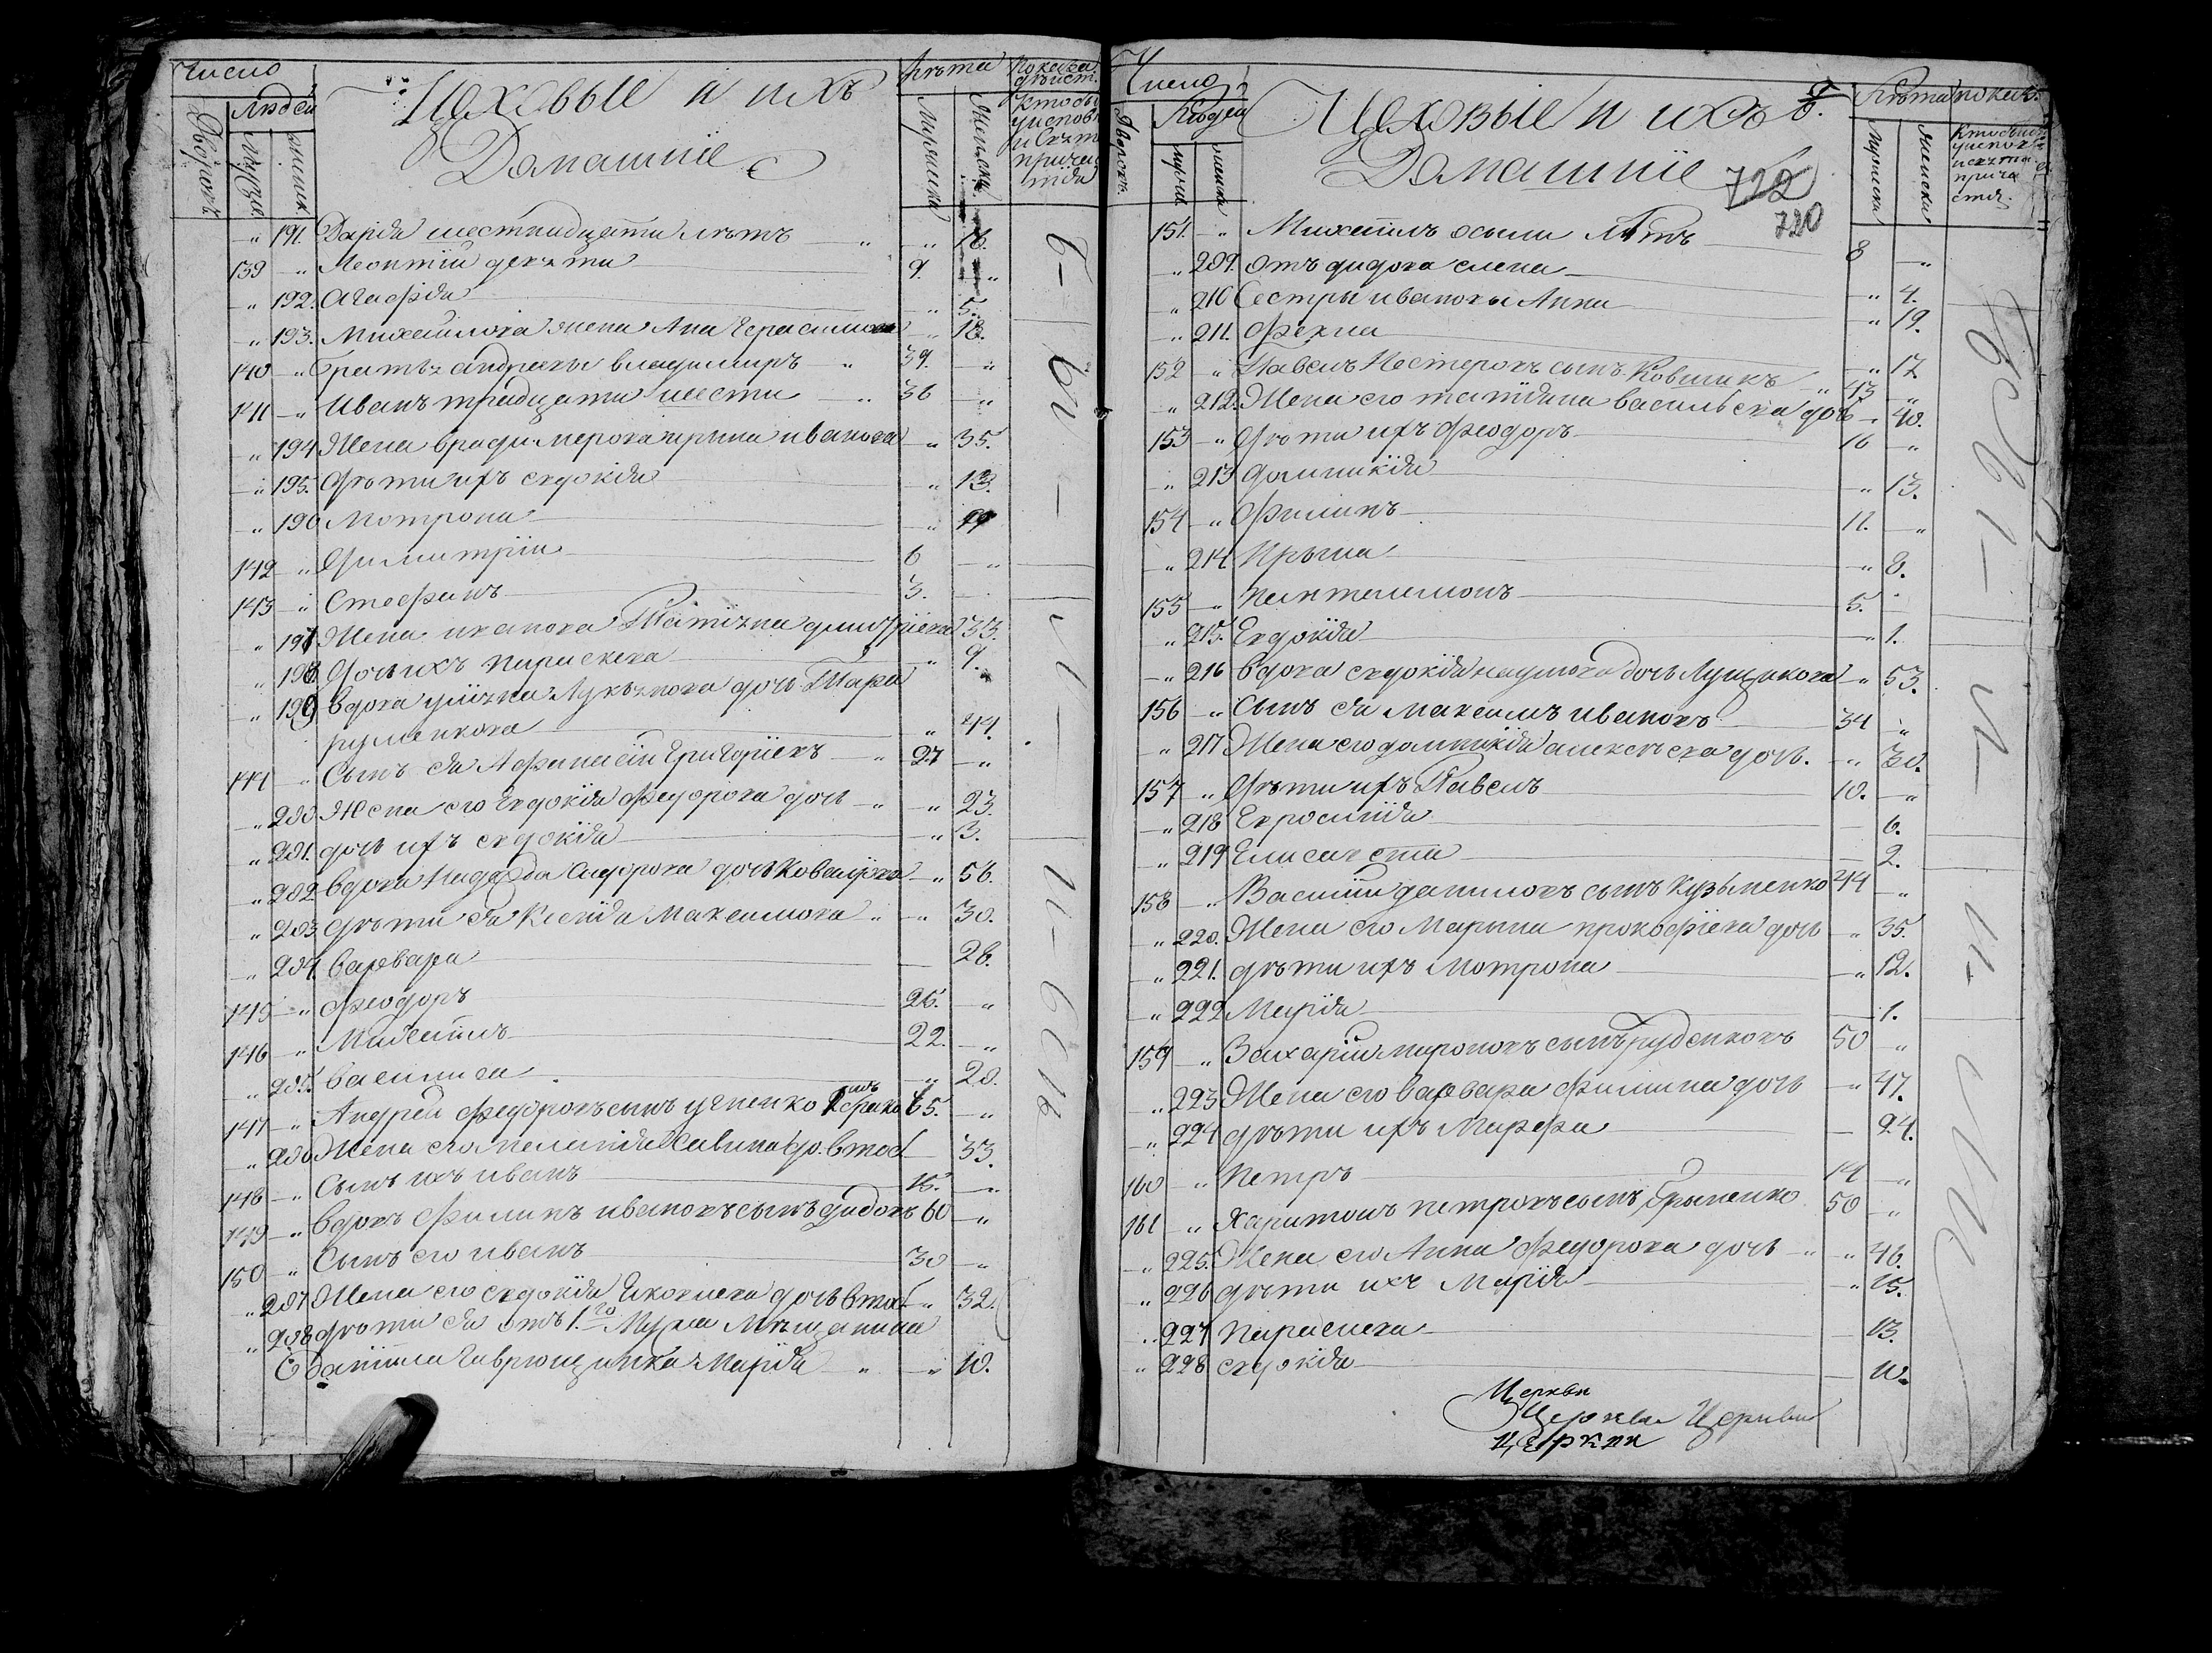 Число
Людей
Дворовъ
мужес.
женск.
Цеховые и ихъ
Домашніе
Лѣта
Мужеска
Женска
Показа дѣйст.
Кто бы
у исповѣ
и Св. т
прича
тія
" 191. Дарія шестнадцати лѣтъ " " 16.
139 " Леонтій девяти 9. "
" 192. Агафія " 5.
" 193. Михайлова жена Ана Герасимова " 18.
140 " Братья андреевы владимиръ " 39. "
141 " Иванъ тридцати шести " 36 "
" 194 Жена владимерова ирина иванова " 35.
" 195. Дѣти ихъ евдокія " 13.
" 196 Мотрона "
142 " Димитрій 6 "
143 " Стефанъ 3.
" 197 Жена иванова Татіяна димитріева 33.
" 198 Дочь ихъ параскева " 9.
" 199 Вдова уліяна Лукьянова дочь Тара
руменкова " 44.
144 " Сынъ ея Афанасій Григоріевъ " 27 "
" 200. Жена его Евдокія Федорова дочь " " 23.
" 201. дочь ихъ евдокія " 3.
" 202 вдова Надежда Сидорова дочь Ковалиова " 56.
" 203 дѣти ея Ксенія Максимова " " 30.
" 204 варвара 26.
145 " феодоръ 25. "
146 " Михаилъ 22. "
" 205. василиса " 20.
147 " Андрей федоровъ сынъ 2 брако 65. "
" 206 Жена его Меланія Савина до. втоб. 33.
148 " Сынъ ихъ иванъ 15. "
149 " вдовъ филипъ ивановъ сынъ дидовъ 60 "
150 " Сынъ его иванъ 30 "
" 207 Жена его евдокія Яковлева дочь втоб. " 32.
" 208 дѣти ея отъ 1.го Мужа Мѣщанина
Гаврющинка Марія " " 10.
Число
Людей
Дворовъ
мужеска
женска
Цеховые и ихъ
Домашніе
722
720
Лѣта
показ.
Мужеска
Женска
Кто былъ
у испов
и св. та
прича
стія.
151. " Михаилъ осьми лѣтъ 8 "
" 209. Отъ дидова елена " 4.
" 210 Сестры ивановы Анна " 19.
" 211. Февла " 17
152 " Павелъ Нестеровъ сынъ Ковшикъ " 43 "
" 212. Жена его татіяна васильева дочь " 40.
153 " Дѣти ихъ феодоръ 16 "
" 213 домникія " 13.
154 " Филипъ 11. "
" 214 Ирына " 8.
155 " пантелимонъ 5. "
" 215. Евдокія " 1.
" 216 вдова евдокія наумова дочь Лущикова " 53.
156 " Сынъ ея максимъ ивановъ 34 "
" 217 Жена его домникія алексѣева дочь. " 30.
157 " Дѣти ихъ Павелъ 10. "
" 218 Евросинія 6.
" 219 Елисавета 2.
158 " Василій даниловъ сынъ кузьменко 44 "
" 220. Жена его Марына прокофіева дочь " 35.
" 221. дѣти ихъ мотрона " 12.
" 222 Марія 1.
159 " Захарій мироновъ сынъ руденковъ 50 "
" 223 Жена его варвара филипа дочь " 47.
" 224 дѣти ихъ Марфа 24.
160 " петръ 14 "
161 " Харитонъ петровъ сынъ Грыненко 50 "
" 225. Жена его Анна федорова дочь " " 46.
" 226 дѣти ихъ Марія " 15.
" 227 параскева 13.
" 228 евдокія 10.
Церкви
Церкви Церкви
церкви